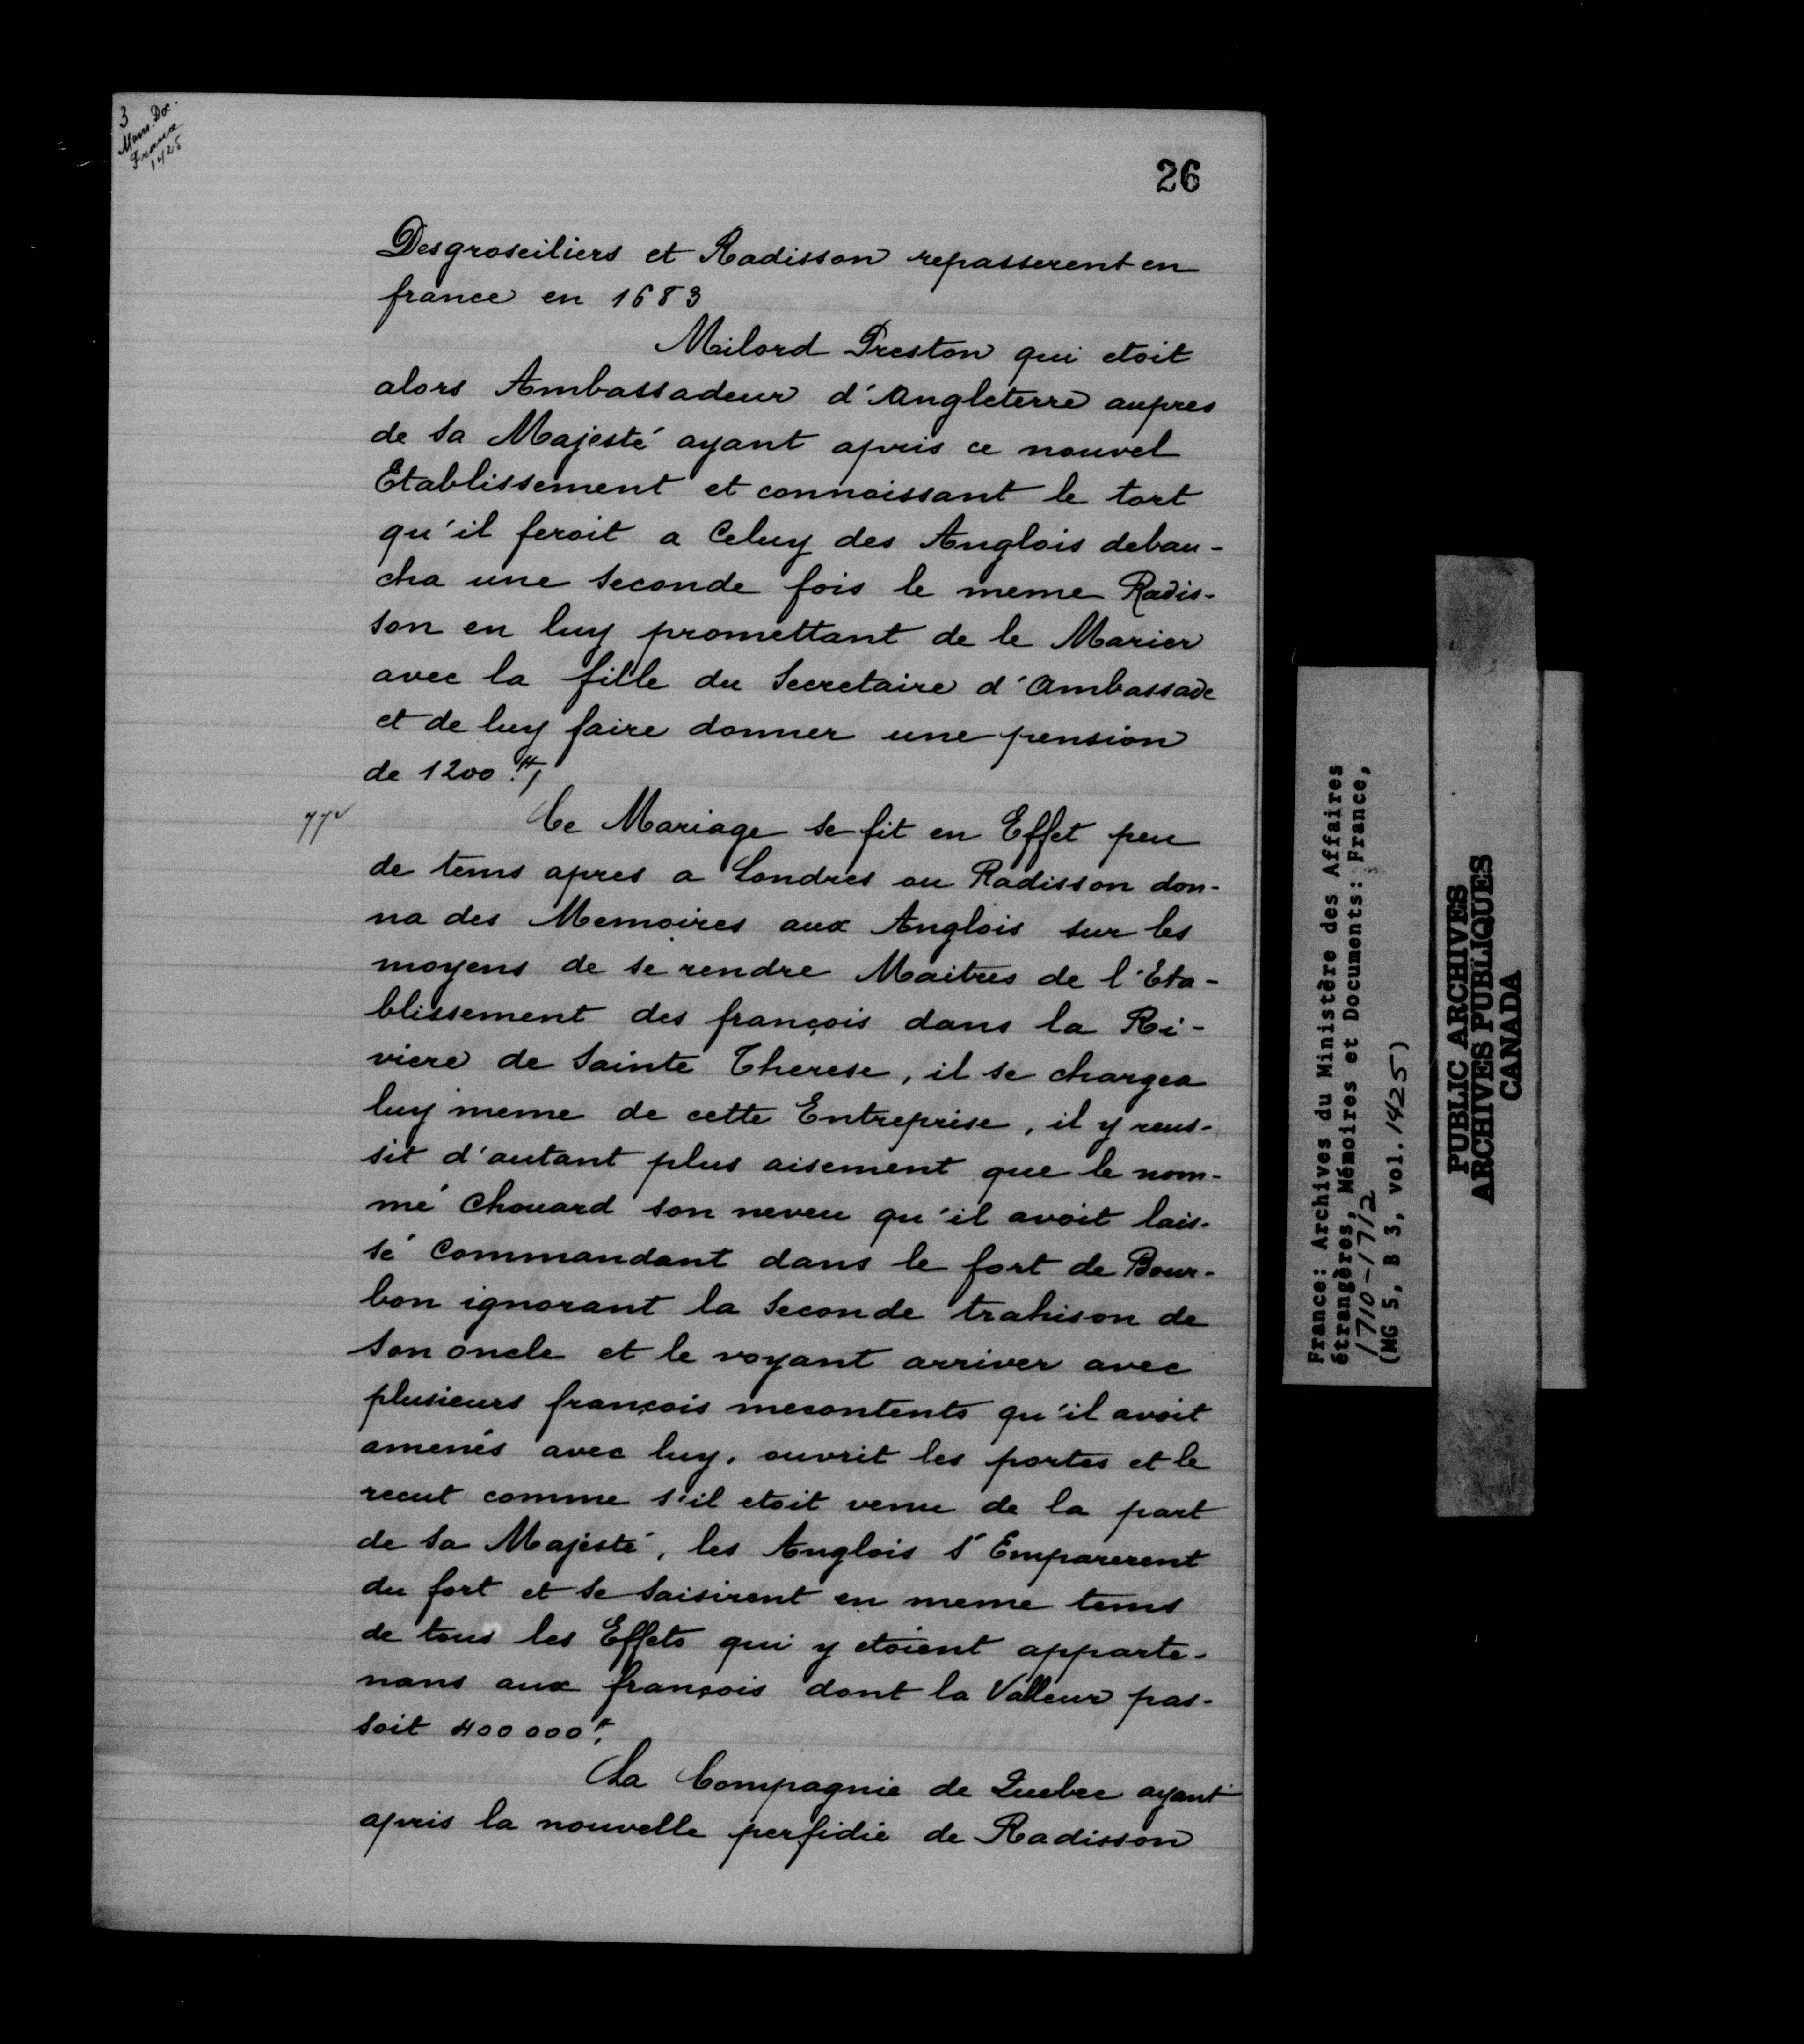 3
Mem. Doc.
France
1425
26
Desgroseiliers et Radisson repasserent en
france en 1683
Milord Preston qui etoit
alors Ambassadeur d'Angleterre aupres
de Sa Majesté ayant apris ce nouvel
Etablissement et connoissant le tort
qu'il feroit a Celuy des Anglois debau-
cha une seconde fois le meme Radis-
son en luy promettant de le Marier
avec la fille du Secretaire d'Ambassade
et de luy faire donner une pension
de 1200 ₶
Ce Mariage se fit en Effet peu
de tems apres a Londres ou Radisson don-
na des Memoires aux Anglois sur les
moyens de se rendre Maitres de l'Eta-
blissement des françois dans la Ri-
viere de Sainte Therese, il se chargea
luy meme de cette Entreprise, il y reus-
sit d'autant plus aisement que le nom-
mé Chouard son neveu qu'il avoit lais-
sé Commandant dans le fort de Bour-
bon ignorant la Seconde trahison de
son oncle et le voyant arriver avec
plusieurs françois mecontents qu'il avoit
amenés avec luy, ouvrit les portes et le
recut comme s'il etoit venu de la part
de Sa Majesté, les Anglois s'Emparerent
du fort et se saisirent en meme tems
de tous les Effets qui y etoient apparte-
nans aux françois dont la Valleur pas-
soit 400000 ₶
La Compagnie de Quebec ayant
apris la nouvelle perfidie de Radisson
France: Archives du Ministère des Affaires
étrangères, Mémoires et Documents: France,
1710-1712
(MG 5, B 3, vol. 1425)
PUBLIC ARCHIVES
ARCHIVES PUBLIQUES
CANADA